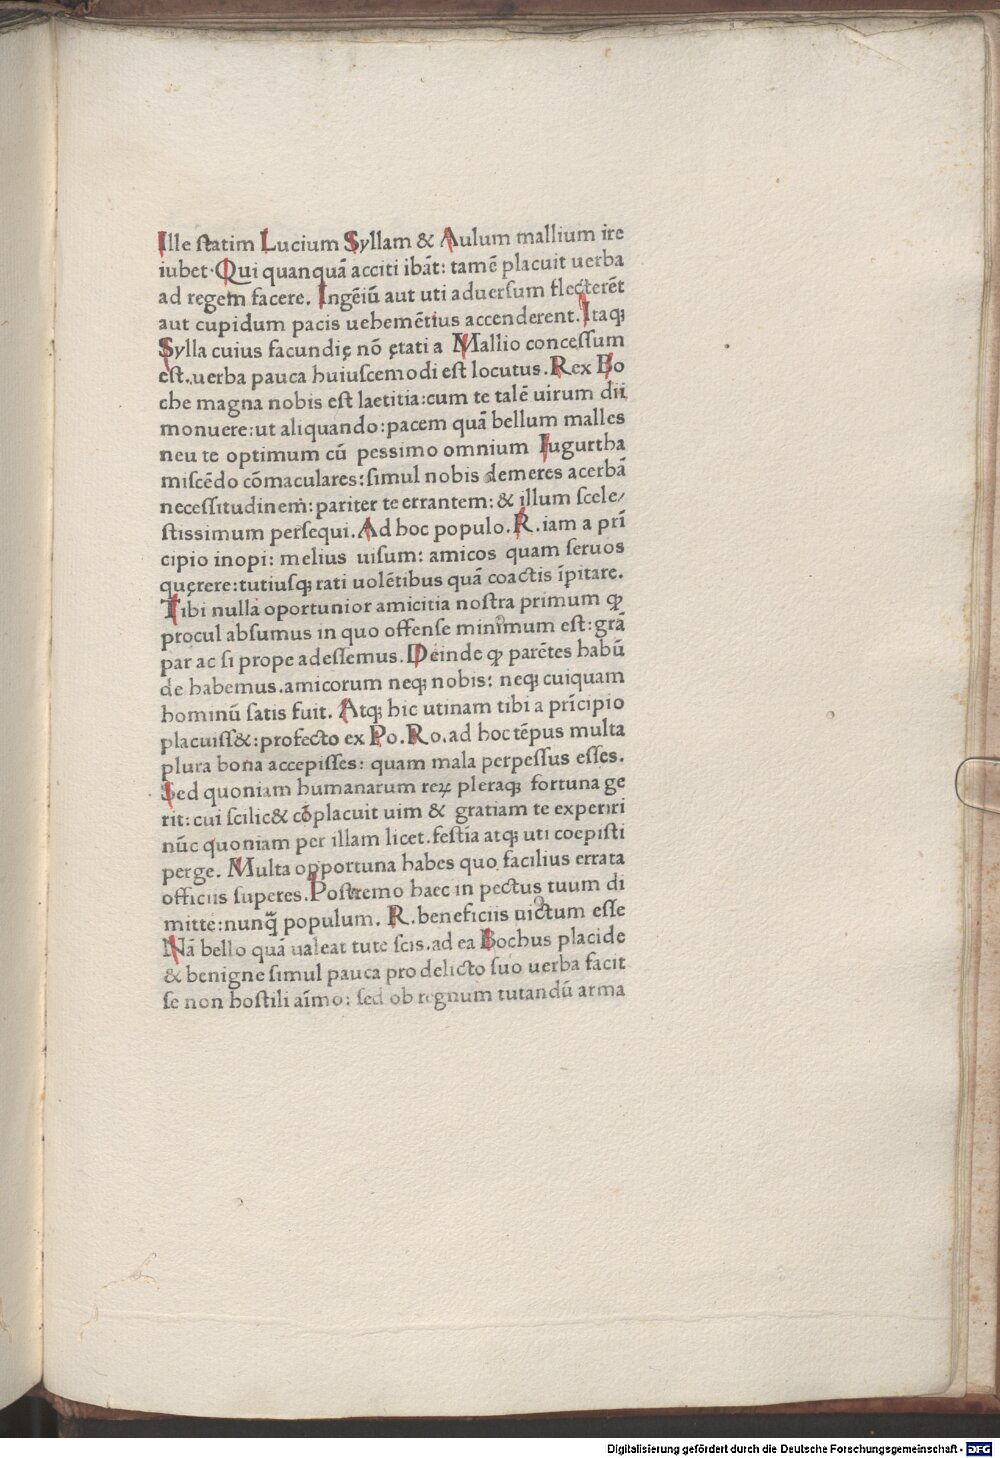 Ille statim Lucium Syllam & Aulum mallium ire
iubet·Qui quanquā acciti ibāt: tamē placuit uerba
ad regem facere. Ingēiū aut uti aduersum flecterēt
aut cupidum pacis uehemētius accenderent.Itaqꝫ
Sylla cuius facundię nō ętati a Mallio concessum
est.uerba pauca huiuscemodi est locutus.Rex Bo
che magna nobis est laetitia:cum te talē uirum dii
monuere:ut aliquando:pacem quā bellum malles
neu te optimum cū pessimo omnium Iugurtha
miscēdo cōmaculares:simul nobis demeres acerbā
necessitudinem: pariter te errantem: & illum scele/
stissimum persequi.Ad hoc populo.R.iam a pri̅
cipio inopi: melius uisum: amicos quam seruos
quęrere:tutiusqꝫ rati uolētibus quā coactis īpitare.
Tibi nulla oportunior amicitia nostra primum ꝙ
procul absumus in quo offense minimum est:grā
par ac si prope adessemus.Deinde ꝙ parētes habū
de habemus.amicorum neqꝫ nobis: neqꝫ cuiquam
hominū satis fuit. Atqꝫ hic utinam tibi a prīcipio
placuiss&:profecto ex Po.Ro.ad hoc tēpus multa
plura bona accepisses: quam mala perpessus esses.
Sed quoniam humanarum reꝝ pleraqꝫ fortuna ge
rit:cui scilic& cōplacuit uim & gratiam te experiri
nūc quoniam per illam licet.festīa atqꝫ uti coepisti
perge. Multa opportuna habes quo facilius errata
officiis superes.Postremo haec in pectus tuum di
mitte:nunq̄ populum. R.beneficiis uictum esse
Nā bello quā ualeat tute scis.ad ea Bochus placide
& benigne simul pauca pro delicto suo uerba facit
se non hostili aīmo: sed ob regnum tutandū arma
Digitalisierung gefördert durch die Deutsche Forschungsgemeinschaft - DFG